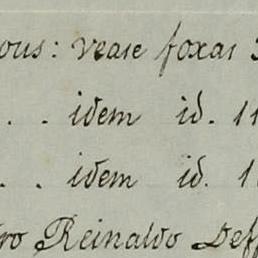 ous: vease foxas
. . idem id. 11
. . idem id. 1
ro Reinaldo Deff